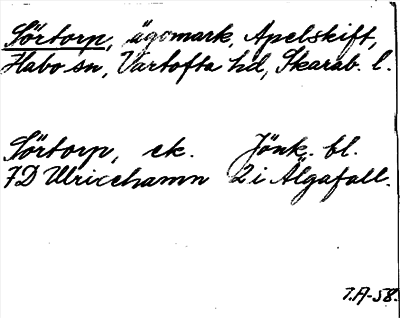 Sörtorp, ägomark, Apelskift,
Habo sn, Vartofta hd, Skarab. l.
Sörtorp, ek. Jönk. bl.
7D Ulricehamn 2i Älgafall.
T.A-58.